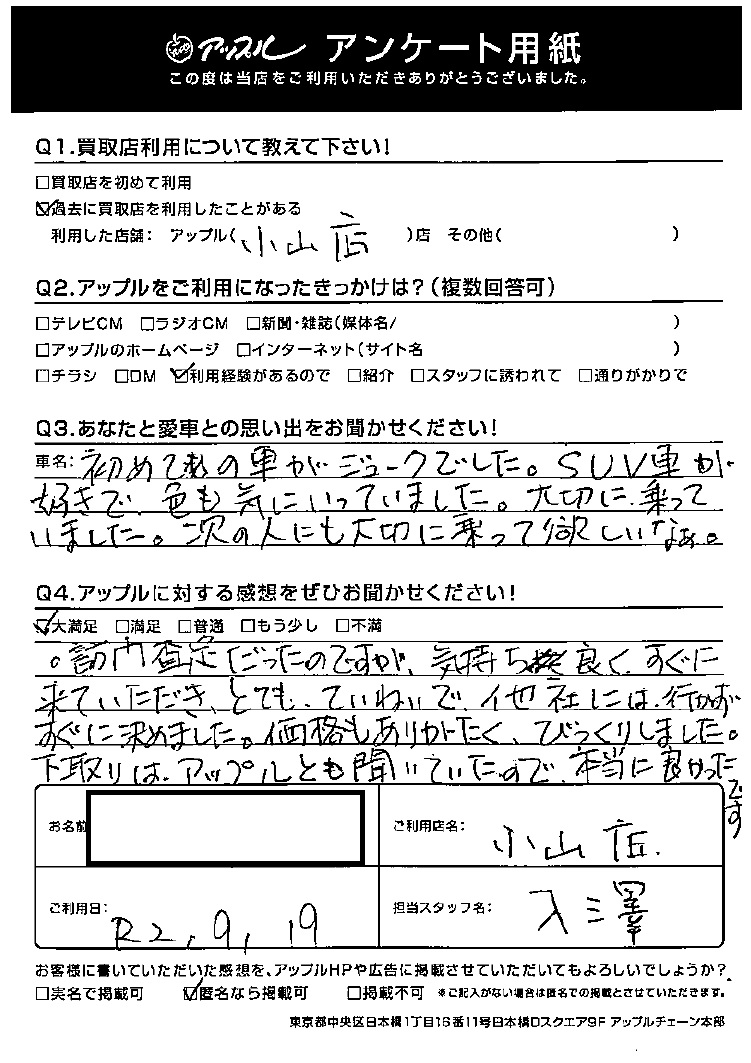 アップル アンケート用紙
この度は当店をご利用いただきありがとうございました。
Q1.買取店利用について教えて下さい!
□買取店を初めて利用
☑過去に買取店を利用したことがある
利用した店舗: アップル(小山店)店 その他( )
Q2.アップルをご利用になったきっかけは?(複数回答可)
□テレビCM □ラジオCM □新聞・雑誌(媒体名/ )
□アップルのホームページ □インターネット(サイト名 )
□チラシ □DM ☑利用経験があるので □紹介 □スタッフに誘われて □通りがかりで
Q3.あなたと愛車との思い出をお聞かせください!
車名: 初めての車がジュークでした。SUV車が
好きで、色も気にいっていました。大切に乗って
いました。次の人にも大切に乗って欲しいなぁ。
Q4.アップルに対する感想をぜひお聞かせください!
☑大満足 □満足 □普通 □もう少し □不満
。訪門査定だったのですが、気持ち良く、すぐに
来ていただき、とても、ていねいで、他社には、行かず
すぐに決めました。価格もありがたく、びっくりしました。
下取りは、アップルとも聞いていたので、本当に良かった
です
お名前
ご利用店名: 小山店.
ご利用日: R2,9,19
担当スタッフ名: 入澤
お客様に書いていただいた感想を、アップルHPや広告に掲載させていただいてもよろしいでしょうか?
□実名で掲載可 ☑匿名なら掲載可 □掲載不可 ※ご記入がない場合は匿名での掲載とさせていただきます。
東京都中央区日本橋1丁目16番11号日本橋Dスクエア9F アップルチェーン本部